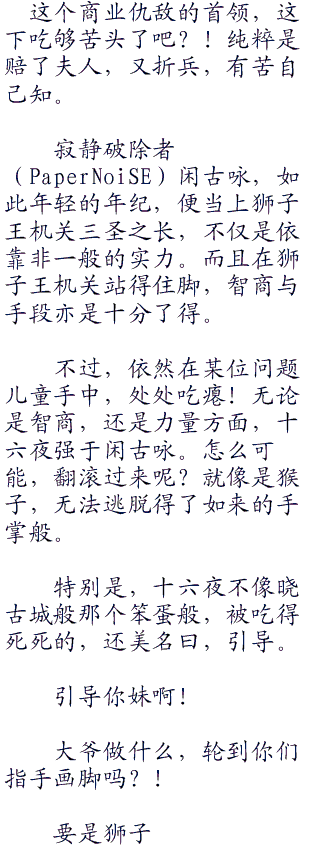 这个商业仇敌的首领，这
下吃够苦头了吧？！纯粹是
赔了夫人，又折兵，有苦自
己知。
寂静破除者
（PaperNoiSE）闲古咏，如
此年轻的年纪，便当上狮子
王机关三圣之长，不仅是依
靠非一般的实力。而且在狮
子王机关站得住脚，智商与
手段亦是十分了得。
不过，依然在某位问题
儿童手中，处处吃瘪！无论
是智商，还是力量方面，十
六夜强于闲古咏。怎么可
能，翻滚过来呢？就像是猴
子，无法逃脱得了如来的手
掌般。
特别是，十六夜不像晓
古城般那个笨蛋般，被吃得
死死的，还美名曰，引导。
引导你妹啊！
大爷做什么，轮到你们
指手画脚吗？！
要是狮子